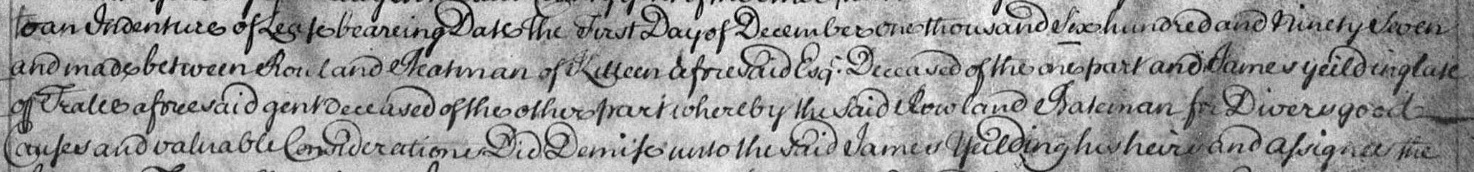 to an Indenture of Lease beareing Date the First Day of December one thousand Six hundred and Ninety Seven
and made between Rowland Bateman of Killeen aforesaid Esqr. Deceased of the one part and James yeilding late
of Tralee aforesaid gent Deceased of the other part whereby the said Rowland Bateman for Divers good
Causes and valuable Considerations Did Demise unto the said James Yeilding his heirs and assignes the